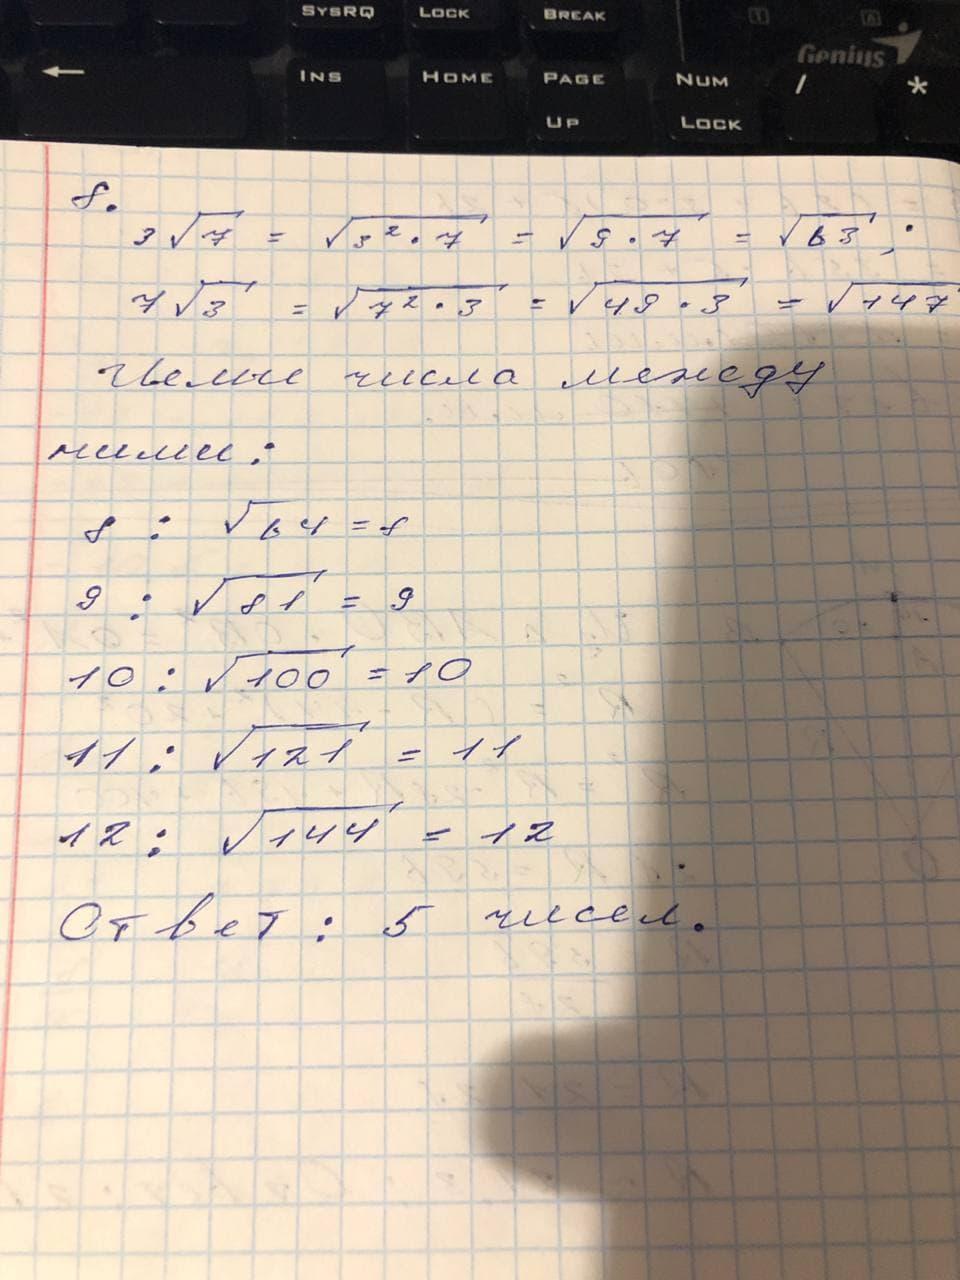 SysRQ Lock Break
Genius
← Ins Home Page Up Num Lock / *
8.
3√7 = √3²·7 = √9·7 = √63;
7√3 = √7²·3 = √49·3 = √147
Целые числа между
ними:
8 : √64 = 8
9 : √81 = 9
10 : √100 = 10
11 : √121 = 11
12 : √144 = 12
Ответ: 5 чисел.